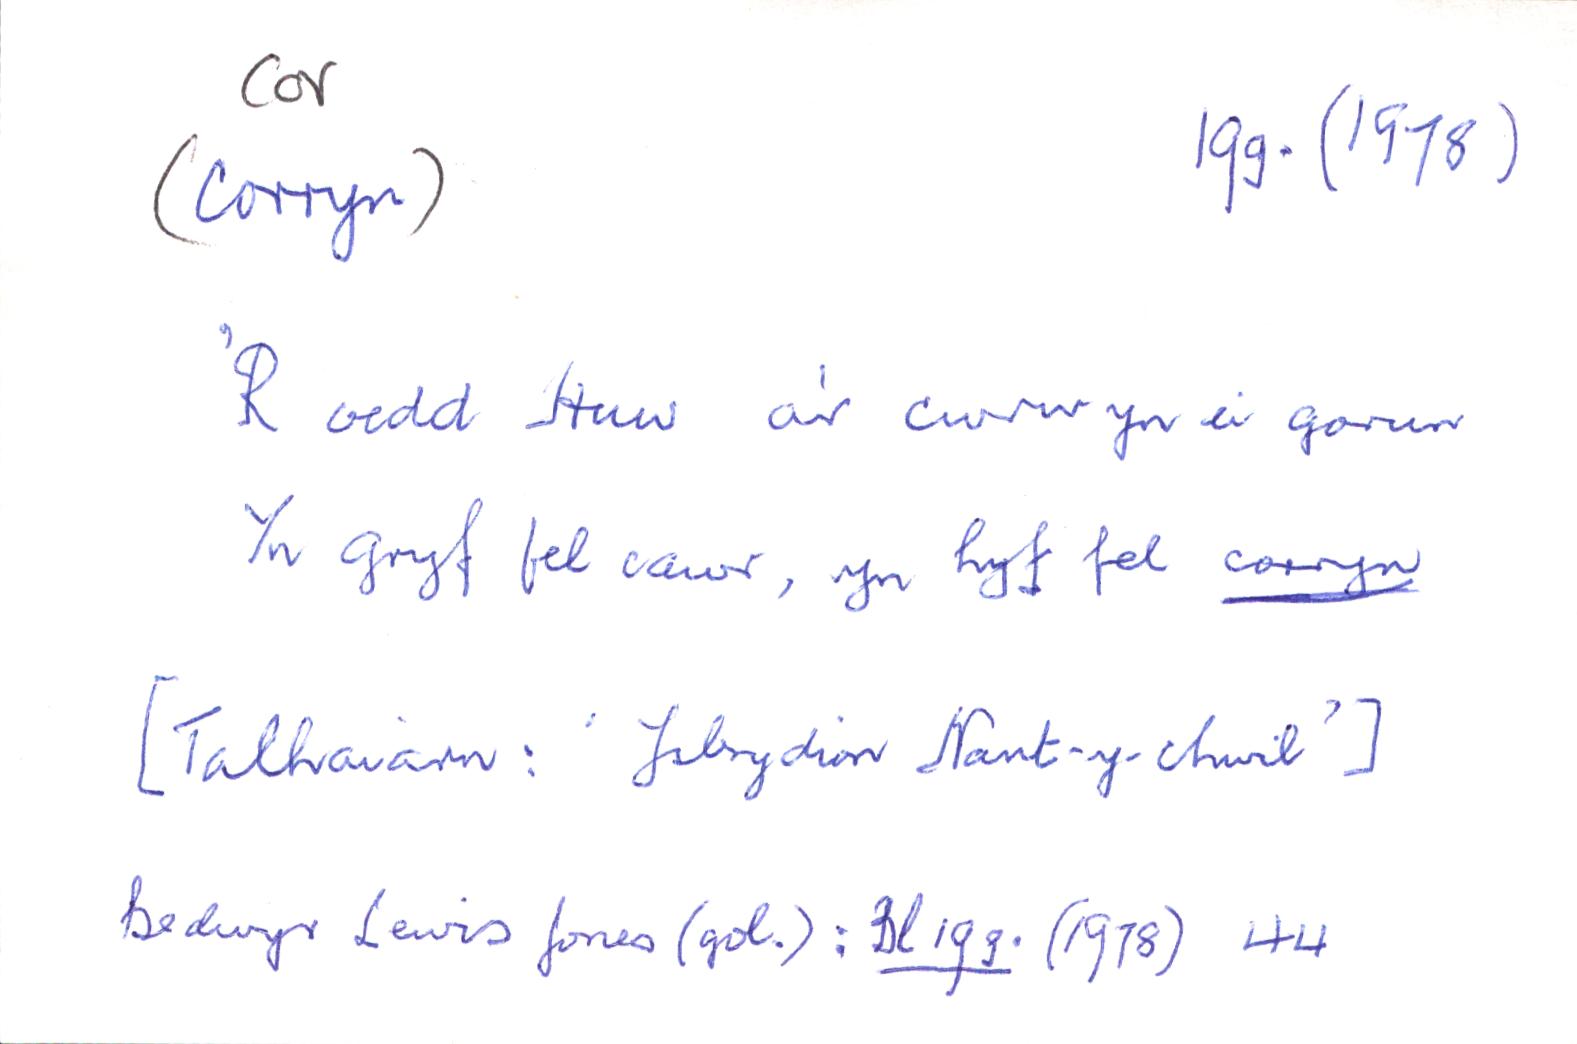 cor
(corryn)
19g. (1978)
'R oedd Huw a'r cwrw yn ei gorun
Yn gryf fel cawr, yn hyf fel corryn
[Talhaiarn: 'Ysbrydion Nant-y-chwil']
Bedwyr Lewis Jones (gol.): Bl 19g. (1978) 44